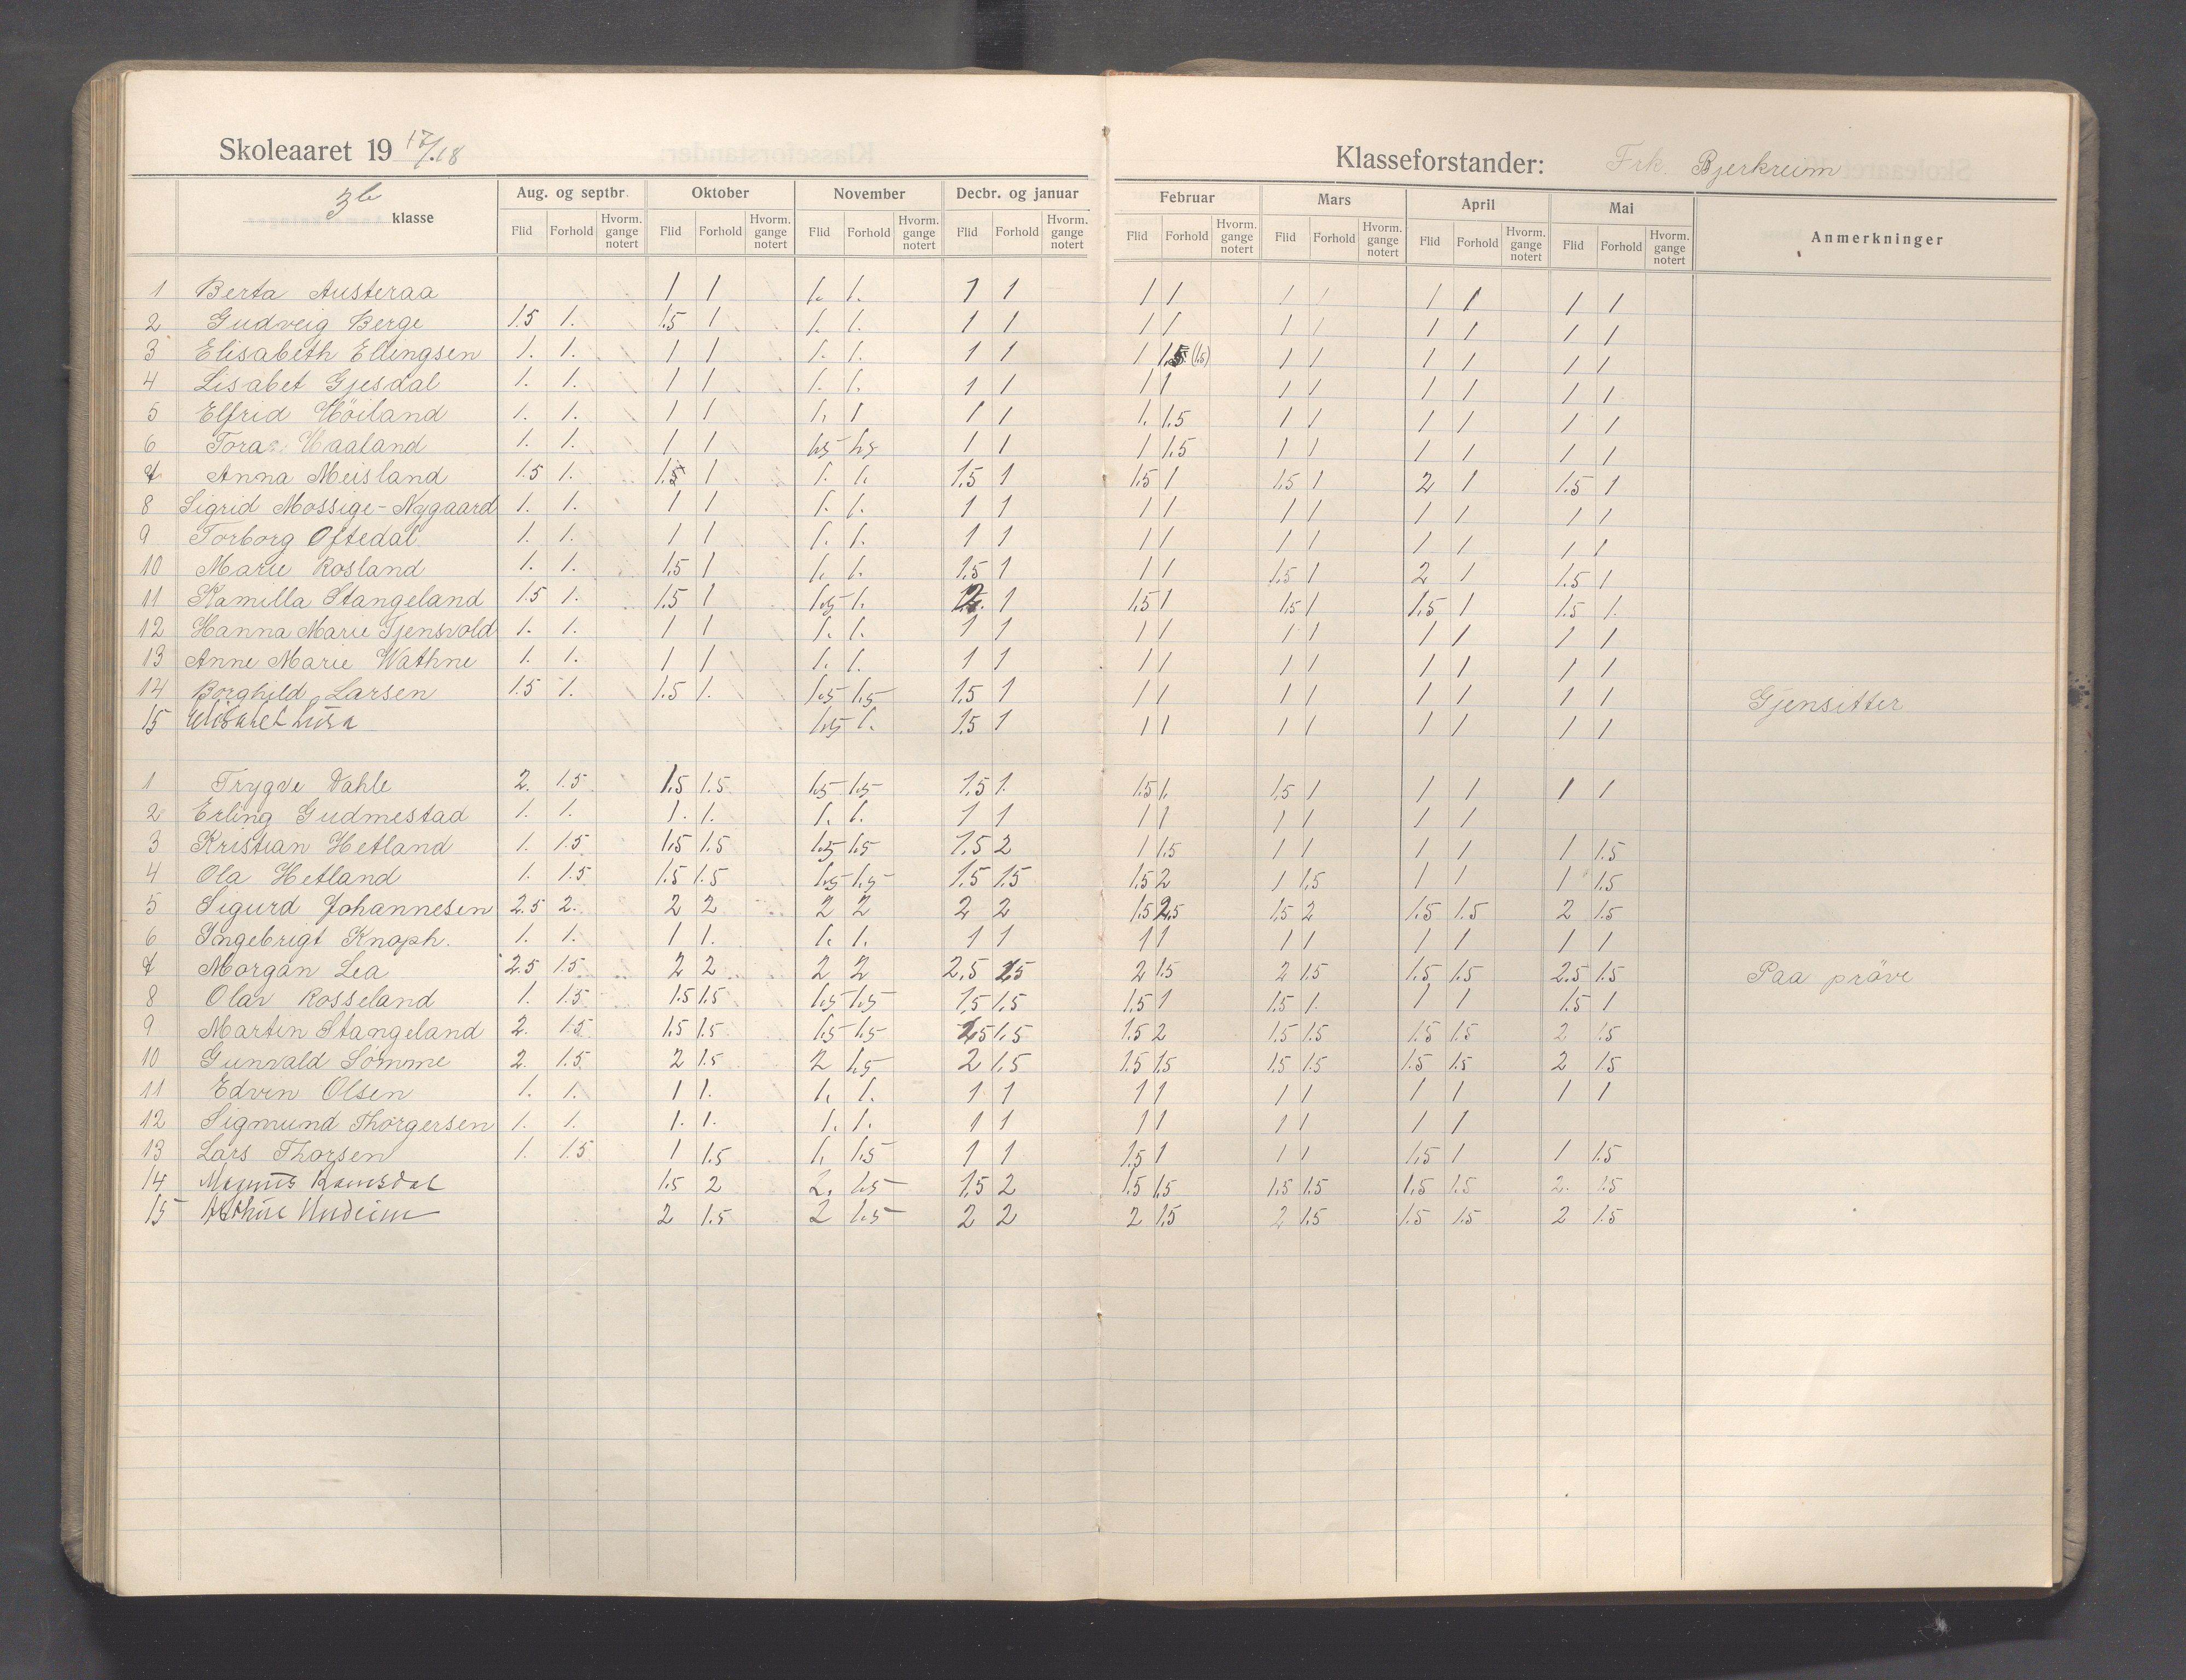 Skoleaaret 1917/18
Klasseforstander: Frk. Bjerkreim
3b klasse
Aug. og septbr. Oktober November Decbr. og januar Februar Mars April Mai Anmerkninger
Flid Forhold Hvorm. gange notert Flid Forhold Hvorm. gange notert Flid Forhold Hvorm. gange notert Flid Forhold Hvorm. gange notert Flid Forhold Hvorm. gange notert Flid Forhold Hvorm. gange notert Flid Forhold Hvorm. gange notert Flid Forhold Hvorm. gange notert
1 Berta Austeraa 1 1 1. 1. 1 1 1 1 1 1 1 1 1 1
2 Gudveig Berge 1.5 1. 1.5 1 1. 1. 1 1 1 1 1 1 1 1 1 1
3 Elisabeth Ellingsen 1. 1. 1 1 1. 1. 1 1 1 1.5 (1.5) 1 1 1 1 1 1
4 Lisabet Gjesdal 1. 1. 1 1 1. 1. 1 1 1 1 1 1 1 1 1 1
5 Elfrid Höiland 1. 1. 1 1 1. 1 1 1 1. 1.5 1 1 1 1 1 1
6 Tora Haaland 1. 1. 1 1 1.5 1.5 1 1 1 1.5 1 1 1 1 1 1
7 Anna Meisland 1.5 1. 1.5 1 1. 1. 1.5 1 1.5 1 1.5 1 2 1 1.5 1
8 Sigrid Mossige-Nygaard 1. 1. 1 1 1. 1. 1 1 1 1 1 1 1 1 1 1
9 Torborg Oftedal. 1. 1. 1 1 1. 1. 1 1 1 1 1 1 1 1 1 1
10 Marie Rosland 1. 1. 1.5 1 1. 1. 1.5 1 1 1 1.5 1 2 1 1.5 1
11 Kamilla Stangeland 1.5 1. 1.5 1 1.5 1. 2. 1 1.5 1 1.5 1 1.5 1 1.5 1.
12 Hanna Marie Tjensvold 1. 1. 1 1 1. 1. 1 1 1 1 1 1 1 1 1 1
13 Anne Marie Wathne 1. 1. 1 1 1. 1. 1 1 1 1 1 1 1 1 1 1
14 Borghild Larsen 1.5 1. 1.5 1. 1.5 1.5 1.5 1 1 1 1 1 1 1 1 1 Gjensitter
15 Elisabet Lura 1.5 1. 1.5 1 1 1 1 1 1 1 1 1
1 Trygve Dahle 2. 1.5 1.5 1.5 1.5 1.5 1.5 1. 1.5 1. 1.5 1 1 1 1 1
2 Erling Gudmestad 1. 1. 1. 1. 1. 1. 1 1 1 1 1 1 1 1
3 Kristian Hetland 1. 1.5 1.5 1.5 1.5 1.5 1.5 2 1 1.5 1 1 1 1 1 1.5
4 Ola Hetland 1. 1.5 1.5 1.5 1.5 1.5 1.5 1.5 1.5 2 1 1.5 1 1 1 1.5
5 Sigurd Johannesen 2.5 2. 2 2 2 2 2 2 1.5 2.5 1.5 2 1.5 1.5 2 1.5
6 Ingebrigt Knaph. 1. 1. 1 1. 1. 1. 1 1 1 1 1 1 1 1 1 1
7 Morgan Lea 2.5 1.5 2 2 2 2 2,5 25 2 1.5 2 1.5 1.5 1.5 2.5 1.5 Paa pröve
8 Olav Rosseland 1. 1.5 1.5 1.5 1.5 1.5 1,5 1.5 1.5 1 1.5 1. 1 1 1.5 1
9 Martin Stangeland 2. 1.5 1.5 1.5 1.5 1.5 25 1.5 1.5 2 1.5 1.5 1.5 1.5 2 1.5
10 Gunvald Sömme 2. 1.5. 2 1.5 2 1.5 2 1.5 1.5 1.5 1.5 1.5 1.5 1.5 2 1.5
11 Edvin Olsen 1. 1. 1 1. 1. 1. 1 1 1 1 1 1 1 1 1 1
12 Sigmund Thorgersen 1. 1. 1. 1. 1. 1. 1 1 1 1 1 1 1 1
13 Lars Thorsen 1. 1.5 1 1.5 1. 1.5 1 1 1.5 1 1 1 1.5 1 1 1.5
14 Magnus Ramsdal 1.5 2 2. 1.5 1.5 2 1.5 1.5 1.5 1.5 1.5 1.5 2. 1.5
15 Arthur Undeim 2 1.5 2 1.5 2 2 2 1.5 2 1.5 1.5 1.5 2 1.5